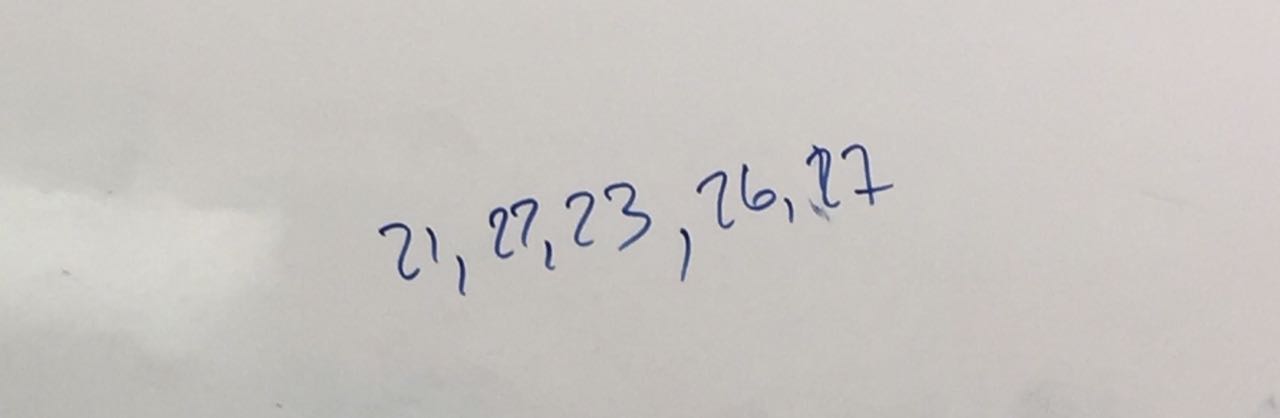 21, 22, 23, 26, 27